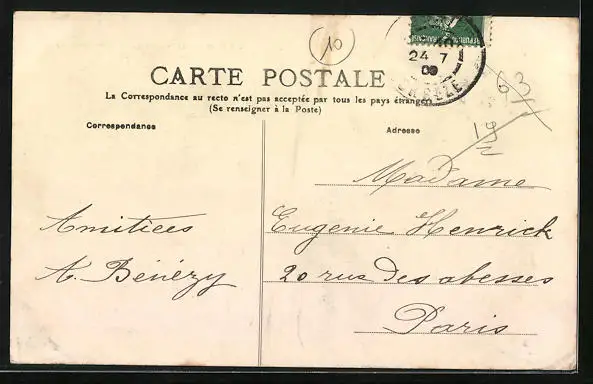 10
RÉPUBLIQUE FRANÇAISE
24 7
09
CARTE POSTALE
La Correspondance au recto n'est pas acceptée par tous les pays étrangers
(Se renseigner à la Poste)
63
192
Correspondance
Adresse
Madame
Amitiées
Eugenie Henrick
A. Bénézy
20 rue des abesses
Paris